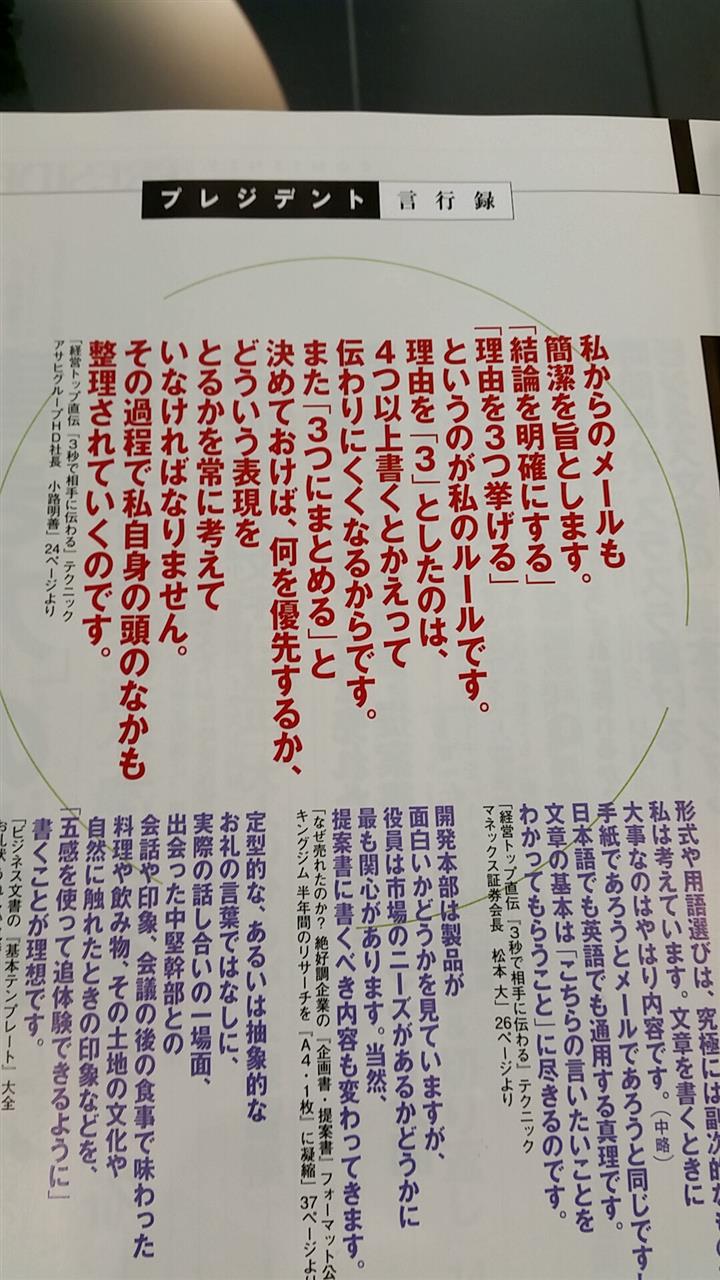 プレジデント 言行録
私からのメールも
簡潔を旨とします。
「結論を明確にする」
「理由を3つ挙げる」
というのが私のルールです。
理由を「3」としたのは、
4つ以上書くとかえって
伝わりにくくなるからです。
また「3つにまとめる」と
決めておけば、何を優先するか、
どういう表現を
とるかを常に考えて
いなければなりません。
その過程で私自身の頭のなかも
整理されていくのです。
「経営トップ直伝『3秒で相手に伝わる』テクニック
アサヒグループHD社長 小路明善」24ページより
形式や用語選びは、究極には副次的なもの
私は考えています。文章を書くときに
大事なのはやはり内容です。(中略)
手紙であろうとメールであろうと同じです
日本語でも英語でも通用する真理です。
文章の基本は「こちらの言いたいことを
わかってもらうこと」に尽きるのです。
「経営トップ直伝『3秒で相手に伝わる』テクニック
マネックス証券会長 松本 大」26ページより
開発本部は製品が
面白いかどうかを見ていますが、
役員は市場のニーズがあるかどうかに
最も関心があります。当然、
提案書に書くべき内容も変わってきます。
「なぜ売れたのか？ 絶好調企業の『企画書・提案書』フォーマット公
キングジム 半年間のリサーチを『A4・1枚』に凝縮」37ページより
定型的な、あるいは抽象的な
お礼の言葉ではなしに、
実際の話し合いの一場面、
出会った中堅幹部との
会話や印象、会議の後の食事で味わった
料理や飲み物、その土地の文化や
自然に触れたときの印象などを、
「五感を使って追体験できるように」
書くことが理想です。
「ビジネス文書の『基本テンプレート』大全